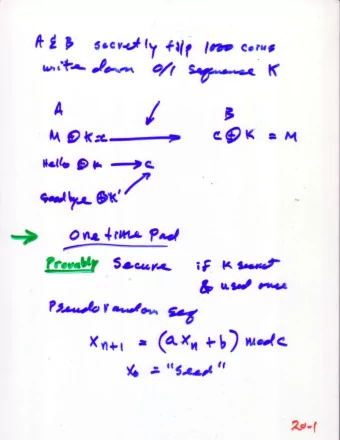 A & B secretly flip 1000 coins
write down 0/1 sequence K
A B
M ⊕ K = C ⊕ K = M
Hello ⊕ K → C
Goodbye ⊕ K'
→ One time Pad
Provably Secure if K secret
& used once
Pseudorandom seq
Xn+1 = (a Xn + b) mod c
X0 = "Seed"
20-1